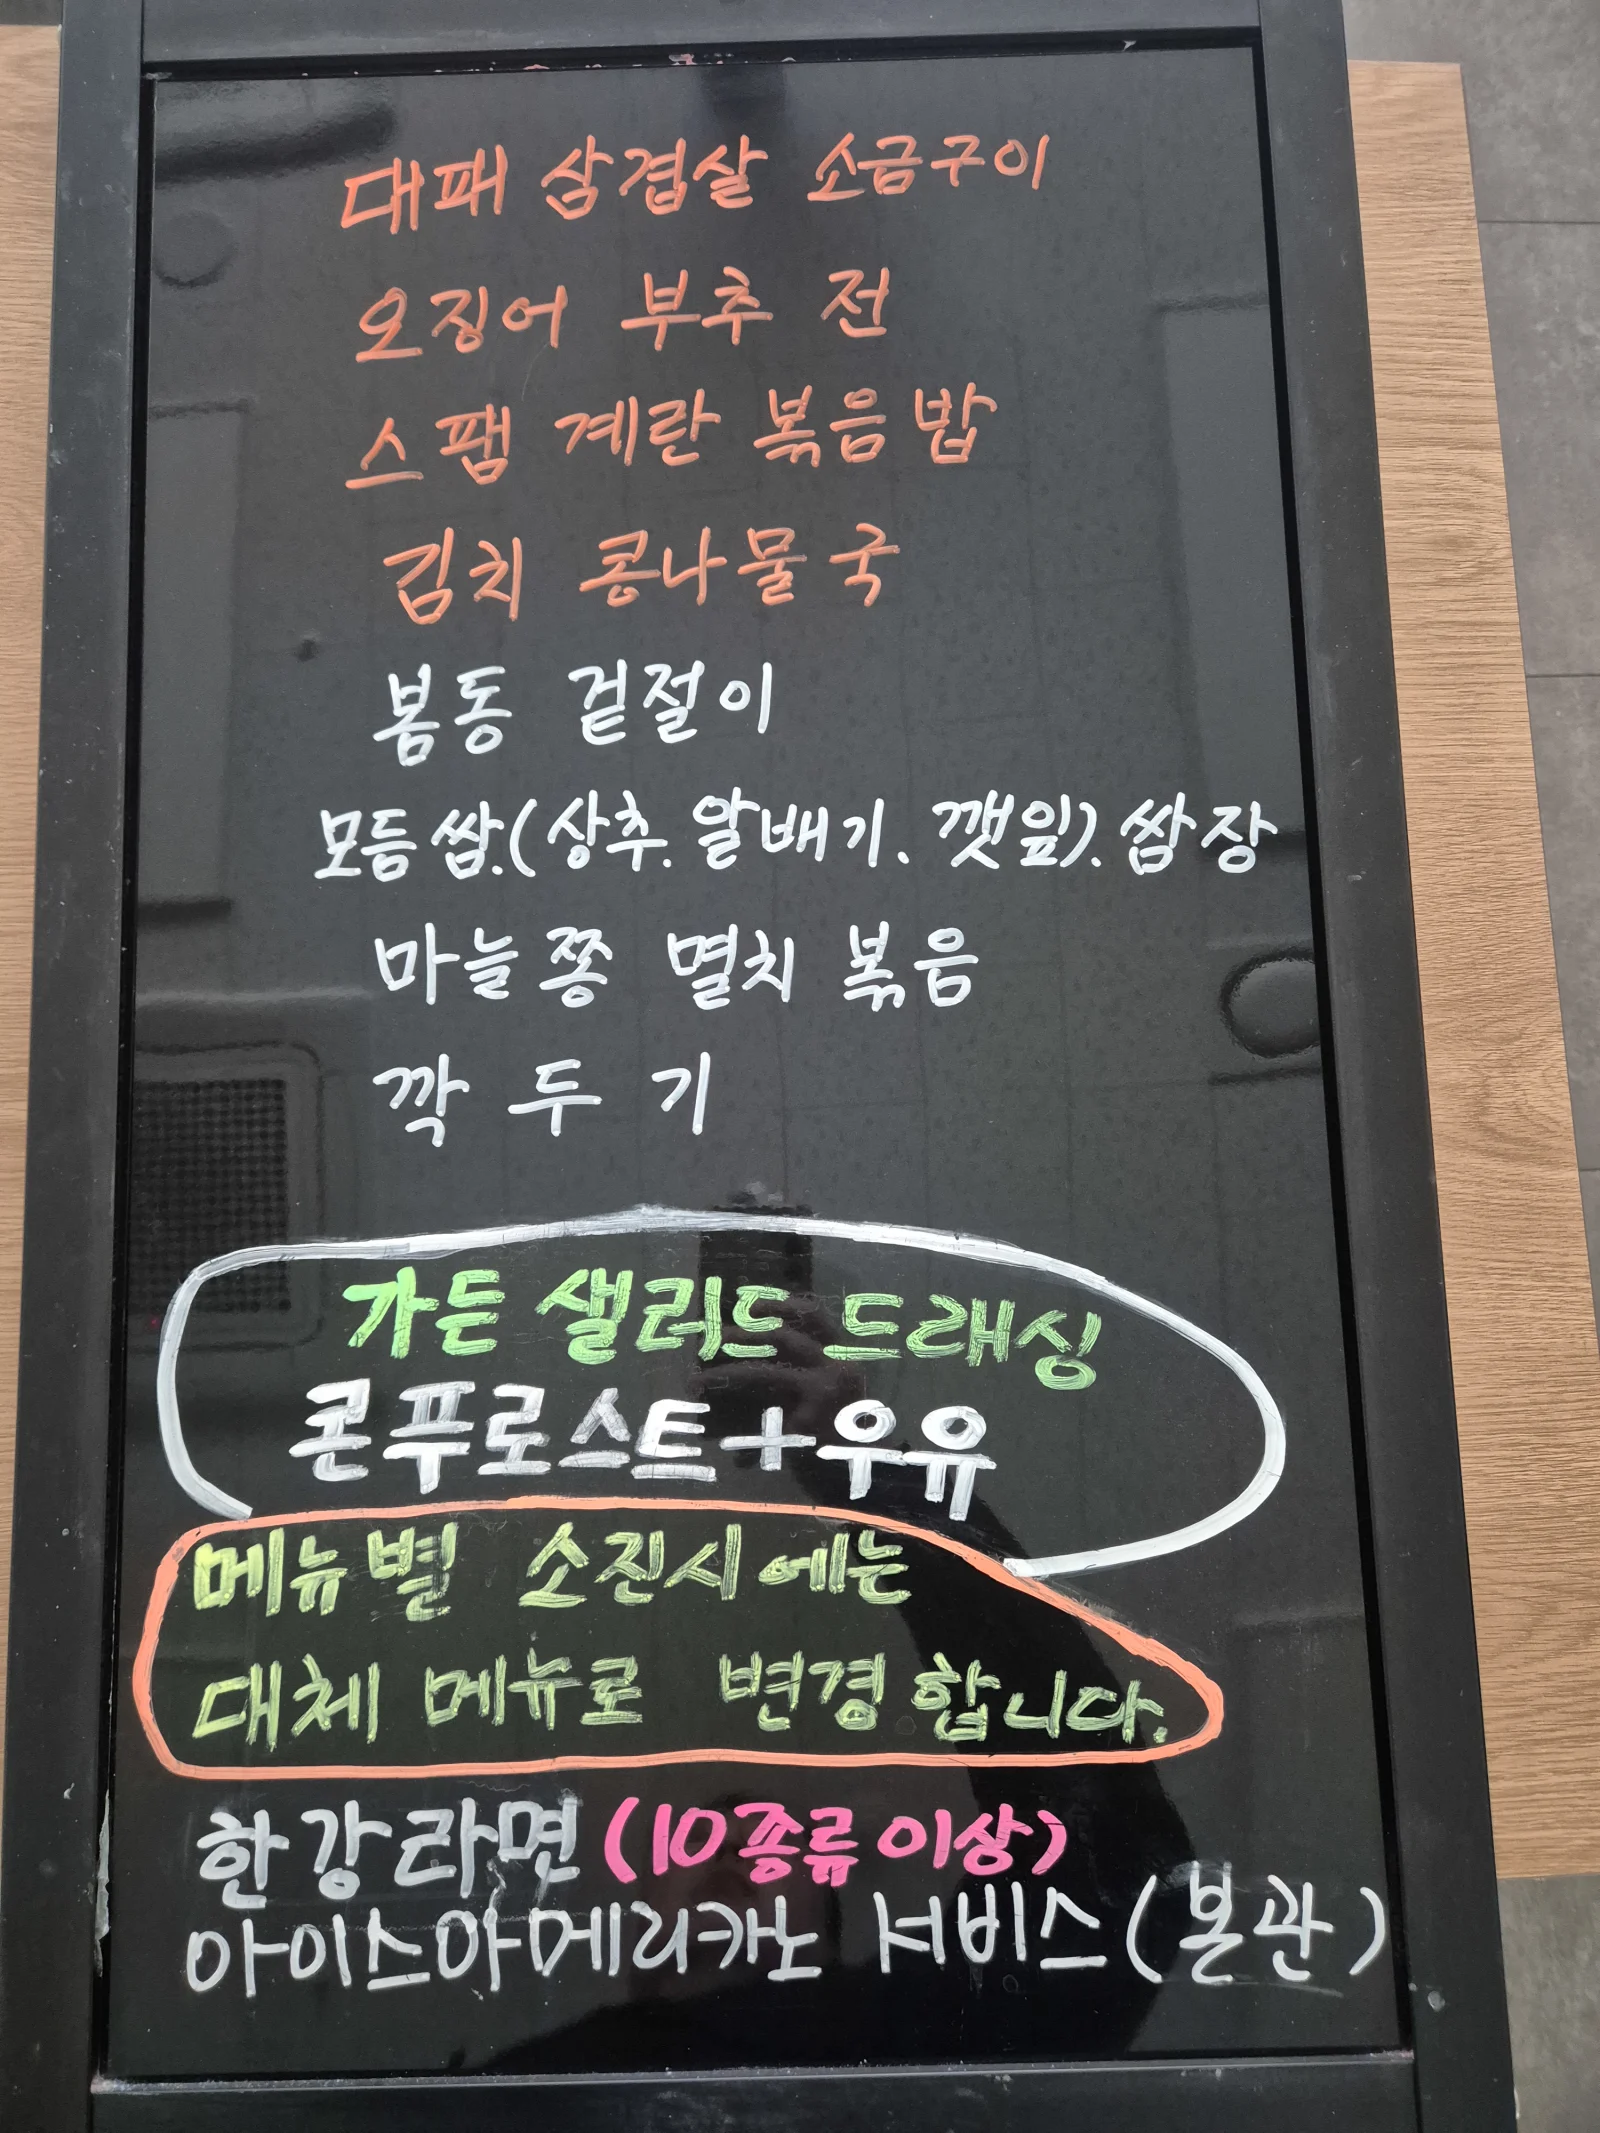 대패 삼겹살 소금구이
오징어 부추 전
스팸 계란 볶음밥
김치 콩나물국
봄동 겉절이
모듬쌈.(상추.알배기.깻잎).쌈장
마늘쫑 멸치 볶음
깍두기
가든 샐러드 드래싱
콘푸로스트+우유
메뉴별 소진시에는
대체 메뉴로 변경합니다.
한강라면(10종류이상)
아이스아메리카노 서비스(본관)